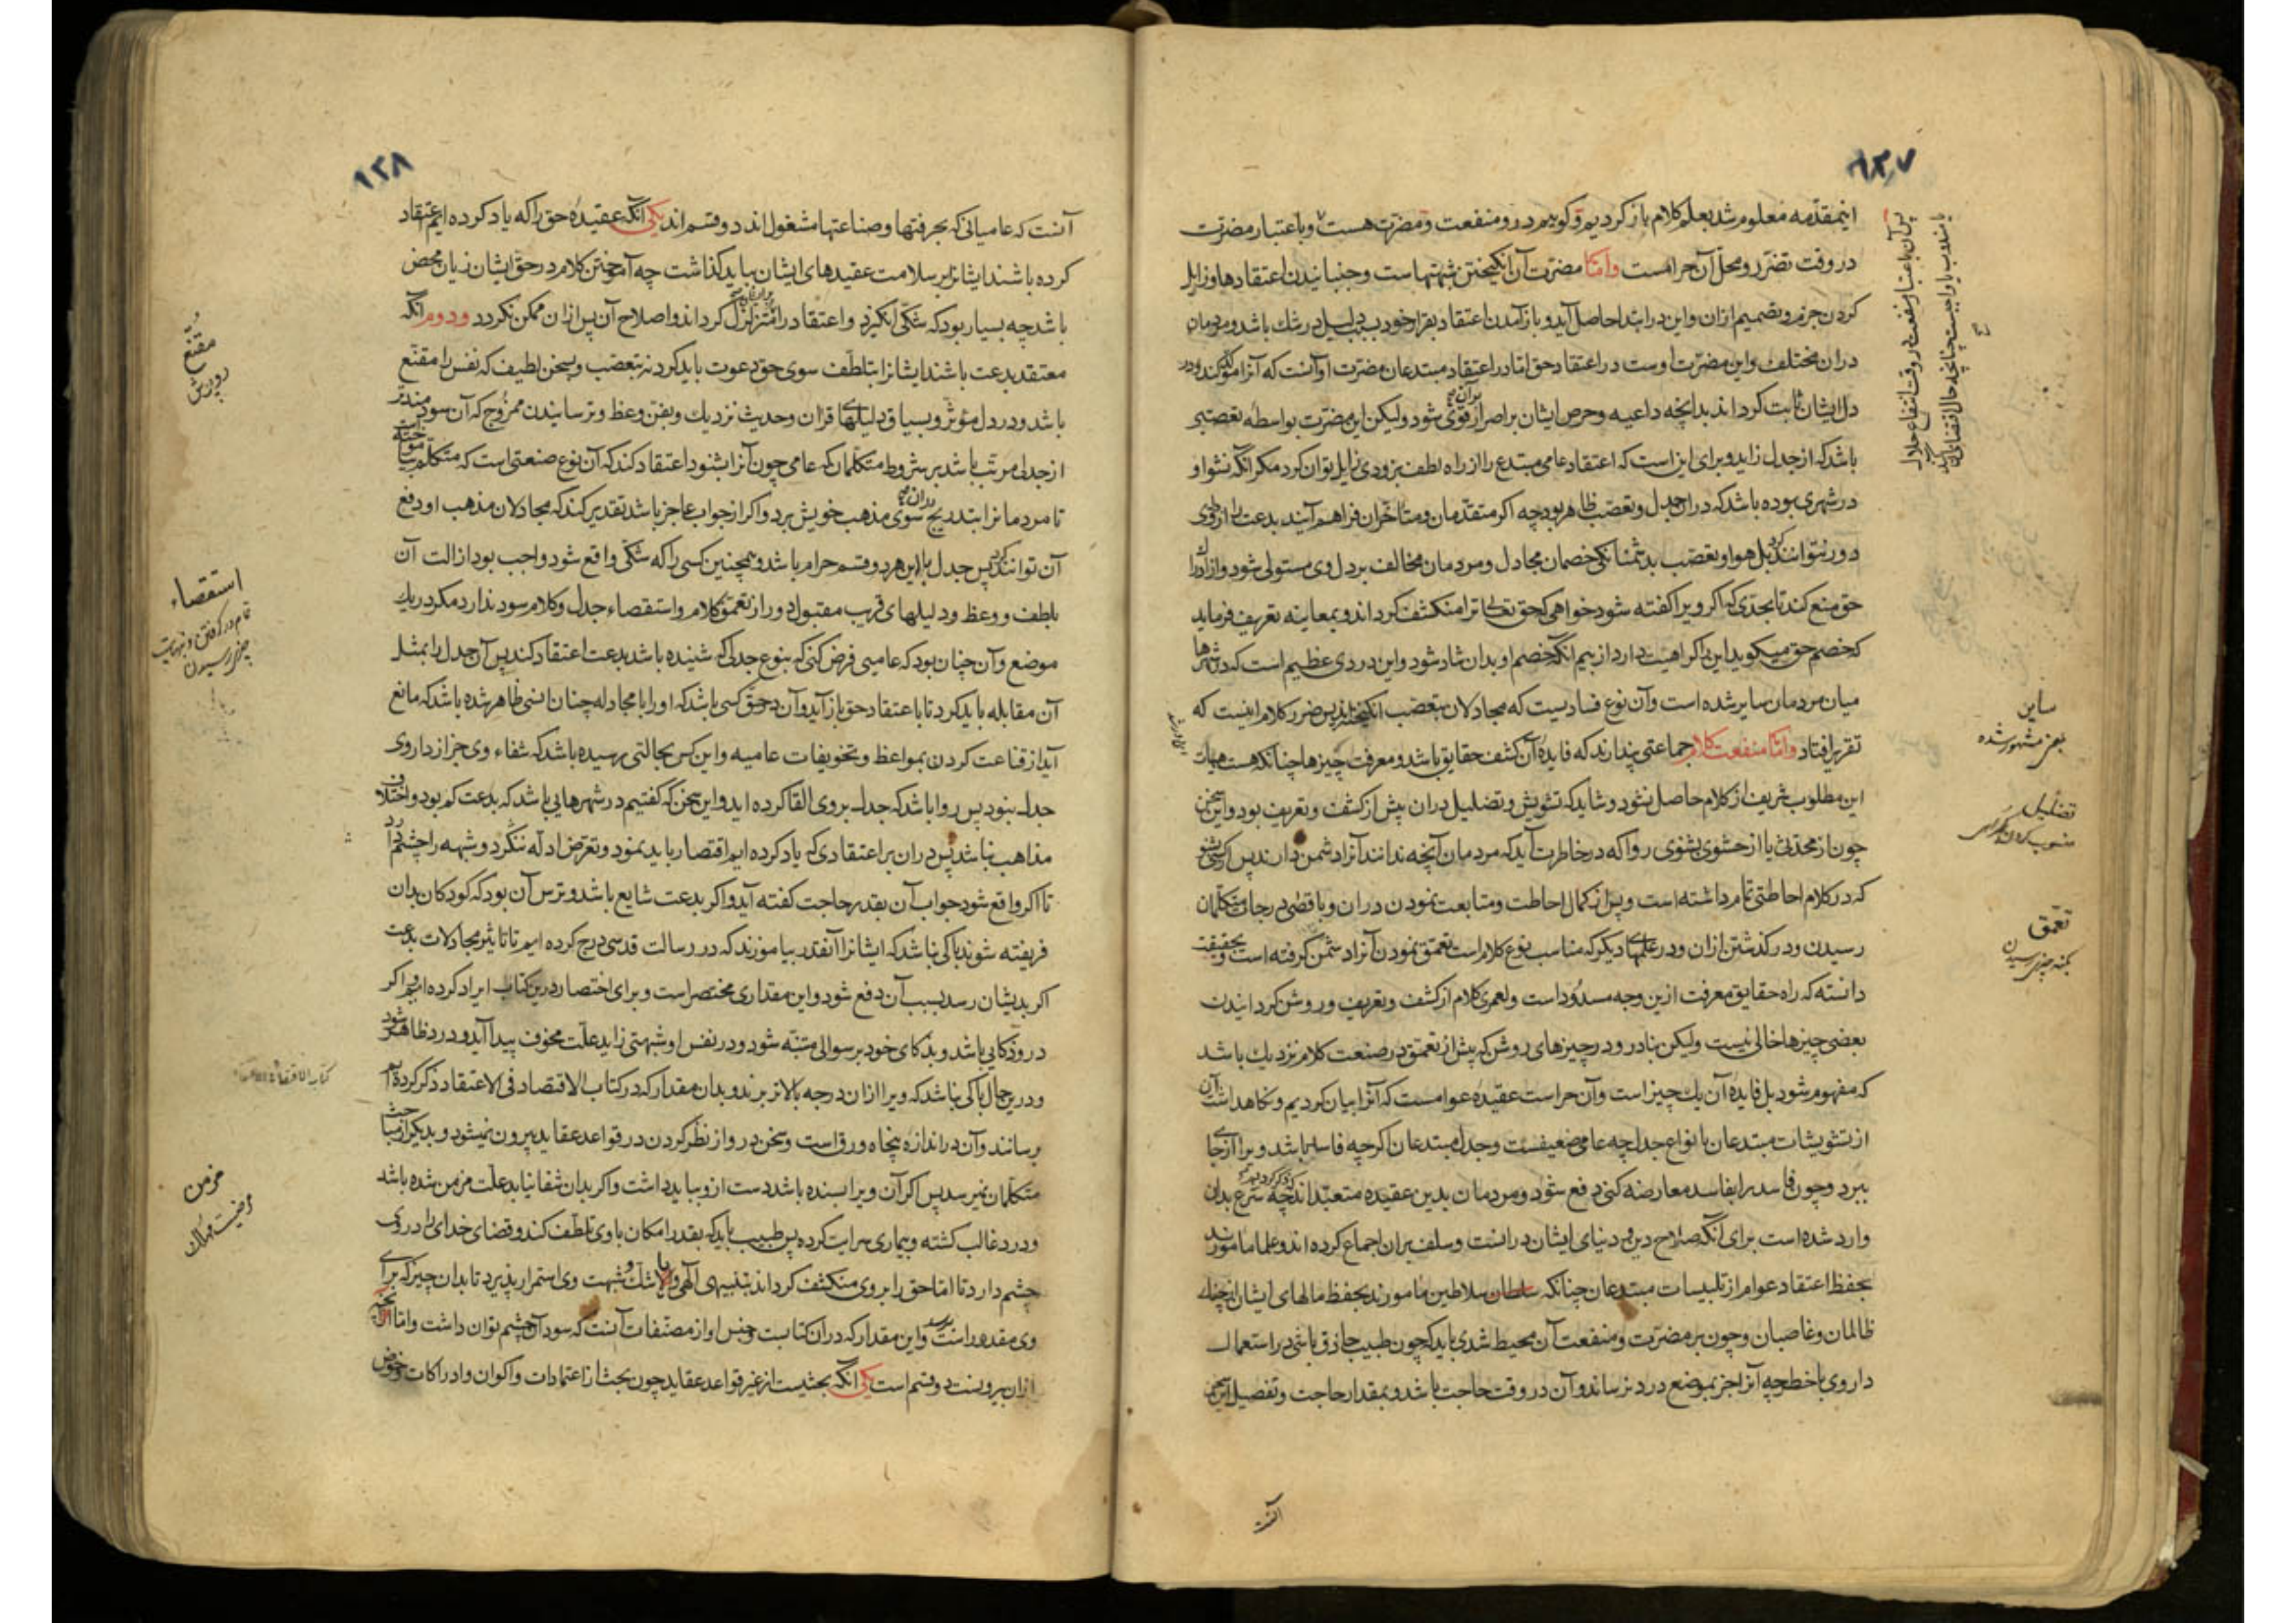 ۱۳۷
اینمقدمه معلوم شد بعلم کلام باز کردیم و کوییم درو منفعت و مضرت هست و باعتبار مضرت
در وقت تضرر و محل آن حرامست و امّا مضرت آن انکیختن شبهتهاست و جنبانیدن اعتقادها و زایل
کردن جزم و تصمیم ازان و این در ابتدا حاصل آید و باز آمدن اعتقاد بقرار خود بسبب دلیل در شك باشد و مردمان
دران مختلف و این مضرت اوست در اعتقاد حق امّا در اعتقاد مبتدعان مضرت او آنست که آنرا مؤکد کند و در
دل ایشان ثابت کرداند بدانچه داعیه و حرص ایشان بر اصرار قوی شود ولیکن این مضرت بواسطه تعصبی
باشد که از جدل زاید و برای این است که اعتقاد عامی مبتدع را از راه لطف بزودی زایل توان کرد مکر انکه نشو او
در شهری بوده باشد که دران جدل و تعصّب ظاهر بود چه اکر متقدّمان و متأخّران فراهم آیند بدعت را از وی
دور نتوانند کرد بل هوا و تعصّب بدشمنانکی خصمان مجادل و مردمان مخالف بر دل وی مستولی شود و از ادراك
حق منع کند تا بحدّی که اکر ویرا کفته شود خواهی که حق تعالی ترا منکشف کرداند و بمعاینه تعریف فرماید
که خصم حق میکوید این را کراهیت دارد از بیم انکه خصم او بدان شاد شود و این دردی عظیم است که در شهرها
میان مردمان سایر شده است و آن نوع فسادیست که مجادلان بتعصّب انکیخته‌اند پس ضرر کلام اینست که
تقریر افتاد و امّا منفعت کلام جماعتی پندارند که فایدهٔ آن کشف حقایق باشد و معرفت چیزها چنانکه هست هیهات
این مطلوب شریف از کلام حاصل نشود و شاید که تشویش و تضلیل دران بیش از کشف و تعریف بود و این سخن
چون از محدّثی یا از حشوی بشنوی روا که در خاطرت آید که مردمان آنچه ندانند آنرا دشمن دارند پس از کسی بشنو
که در کلام احاطتی تمام داشته است و پس از کمال احاطت و متابعت نمودن دران و باقصی درجات متکلّمان
رسیدن و درکذشتن ازان و در علمهای دیکر که مناسب نوع کلام است تعمّق نمودن آنرا دشمن کرفته است و بحقیقت
دانسته که راه حقایق معرفت ازین وجه مسدودست و لعمری کلام از کشف و تعریف و روشن کردانیدن
بعضی چیزها خالی نیست ولیکن بنادر و در چیزهای روشن که پیش از تعمّق در صنعت کلام نزدیك باشد
که مفهوم شود بل فایدهٔ آن یك چیز است و آن حراست عقیدهٔ عوامست که آنرا بیان کردیم و نکاهداشت آن
از تشویشات مبتدعان بانواع جدل چه عامی ضعیفست و جدل مبتدعان اکرچه فاسد باشد ویرا از جای
ببرد و چون فاسد را بفاسد معارضه کنی دفع شود و مردمان بدین عقیده متعبّداند چه شرع بدان
وارد شده است برای آنکه صلاح دین و دنیای ایشان درانست و سلف بران اجماع کرده اند و علما مامورند
بحفظ اعتقاد عوام از تلبیسات مبتدعان چنانکه سلطان سلاطین مامورند بحفظ مالهای ایشان از چنك
ظالمان و غاصبان و چون بر مضرت و منفعت آن محیط شدی باید که چون طبیب حاذق باشی در استعمال
داروی باخطر چه آنرا جز بموضع درد نرساند و آن در وقت حاجت باشد و بمقدار حاجت و تفصیل این سخن
آنست
پس آن باعتبار منفعت در وقت انتفاع حلال
یا مندوب یا واجبست چنانچه حال اقتضای آن کند
سایر
یعنی مشهور شده
تضلیل
منسوب کردن بکمراهی
تعمّق
بکنه چیزی رسیدن
۱۳۸
آنست که عامیانی که بحرفتها و صناعتها مشغول اند دو قسم اند یکی انکه عقیدهٔ حق را که یاد کرده ایم اعتقاد
کرده باشند ایشانرا بر سلامت عقیدهای ایشان بباید کذاشت چه آموختن کلام در حق ایشان زیان محض
باشد چه بسیار بود که شکّی انکیزد و اعتقاد را متزلزل کرداند و اصلاح آن پس ازان ممکن نکردد و دوم آنکه
معتقد بدعت باشند ایشانرا بتلطّف سوی حق دعوت باید کرد نه بتعصّب و بسخن لطیف که نفس را مقنّع
باشد و در دل مؤثر و بسیاق دلیلهای قران و حدیث نزدیك و بفنّ وعظ و ترسانیدن ممزوج که آن سودمندتر
از جدلی مرتّب باشد بر شروط متکلّمان که عامی چون آنرا بشنود اعتقاد کند که آن نوع صنعتی است که متکلّم آموخته است
تا مردمانرا بتدریج سوی مذهب خویش برد و اکر از جواب عاجز باشد تقدیر کند که مجادلان مذهب او دفع
آن توانند کرد پس جدل با این هر دو قسم حرام باشد و همچنین کسی را که شکّی واقع شود واجب بود ازالت آن
بلطف و وعظ و دلیلهای قریب مقبول دور از تعمّق کلام و استقصاء جدل و کلام سود ندارد مکر در یك
موضع و آن چنان بود که عامیی فرض کنی که بنوع جدلی که شنیده باشد بدعت اعتقاد کند پس آن جدل را بمثل
آن مقابله باید کرد تا باعتقاد حق باز آید و آن در حق کسی باشد که او را با مجادله چنان انسی ظاهر شده باشد که مانع
آید از قناعت کردن بمواعظ و تخویفات عامیه و این کس بحالتی رسیده باشد که شفاء وی جز از داروی
جدل نبود پس روا باشد که جدل بروی القا کرده اید و این سخن که کفتیم در شهرهایی باشد که بدعت کم بود و اختلاف
مذاهب نباشد پس دران بر اعتقادی که یاد کرده ایم اقتصار باید نمود و تعرّض ادلّه نکرد و شبهه را چشم دارد
تا اکر واقع شود جواب آن بقدر حاجت کفته آید و اکر بدعت شایع باشد و ترس آن بود که کودکان بدان
فریفته شوند باکی نباشد که ایشانرا آنقدر بیاموزند که در رسالت قدسی درج کرده ایم تا تاثیر مجادلات بدعت
اکر بدیشان رسد بسبب آن دفع شود و این مقداری مختصر است و برای اختصار درین کتاب ایراد کرده ایم و اکر
درو ذکایی باشد و بذکای خود بر سوالی متنبّه شود و در نفس او شبهتی زاید علّت مخوف پیدا آید و درد ظاهر شود
و درین حال باکی نباشد که ویرا ازان درجه بالاتر برند و بدان مقدار که در کتاب الاقتصاد فی الاعتقاد ذکر کرده‌ایم
رسانند و آن در اندازه پنجاه ورق است و سخن درو از نظر کردن در قواعد عقاید بیرون نمیشود و بدیکر از مباحث
متکلّمان نمیرسد پس اکر آن ویرا بسنده باشد دست ازو بباید داشت و اکر بدان شفا نیابد علّت مزمن شده باشد
و درد غالب کشته و بیماری سرایت کرده پس طبیب باید که بقدر امکان با وی تلطّف کند و قضای خدای را در وی
چشم دارد تا امّا حق را بروی منکشف کرداند بتنبیهی الهی و یا بر شك و شبهت وی استمرار پذیرد تا بدان چیز که برای
وی مقدورست برسد و این مقدار که دران کتابست و جنس او از مصنّفات آنست که سود آن چشم توان داشت و امّا آنچه
ازان بیرونست دو قسم است یکی آنکه بحثیست از غیر قواعد عقاید چون بحث از اعتمادات و اکوان و ادراکات و خوض
مقنّع
استقصاء
تمام در کرفتن و بنهایت
چیزی رسیدن
کتاب الاقتصاد فی الاعتقاد
مزمن